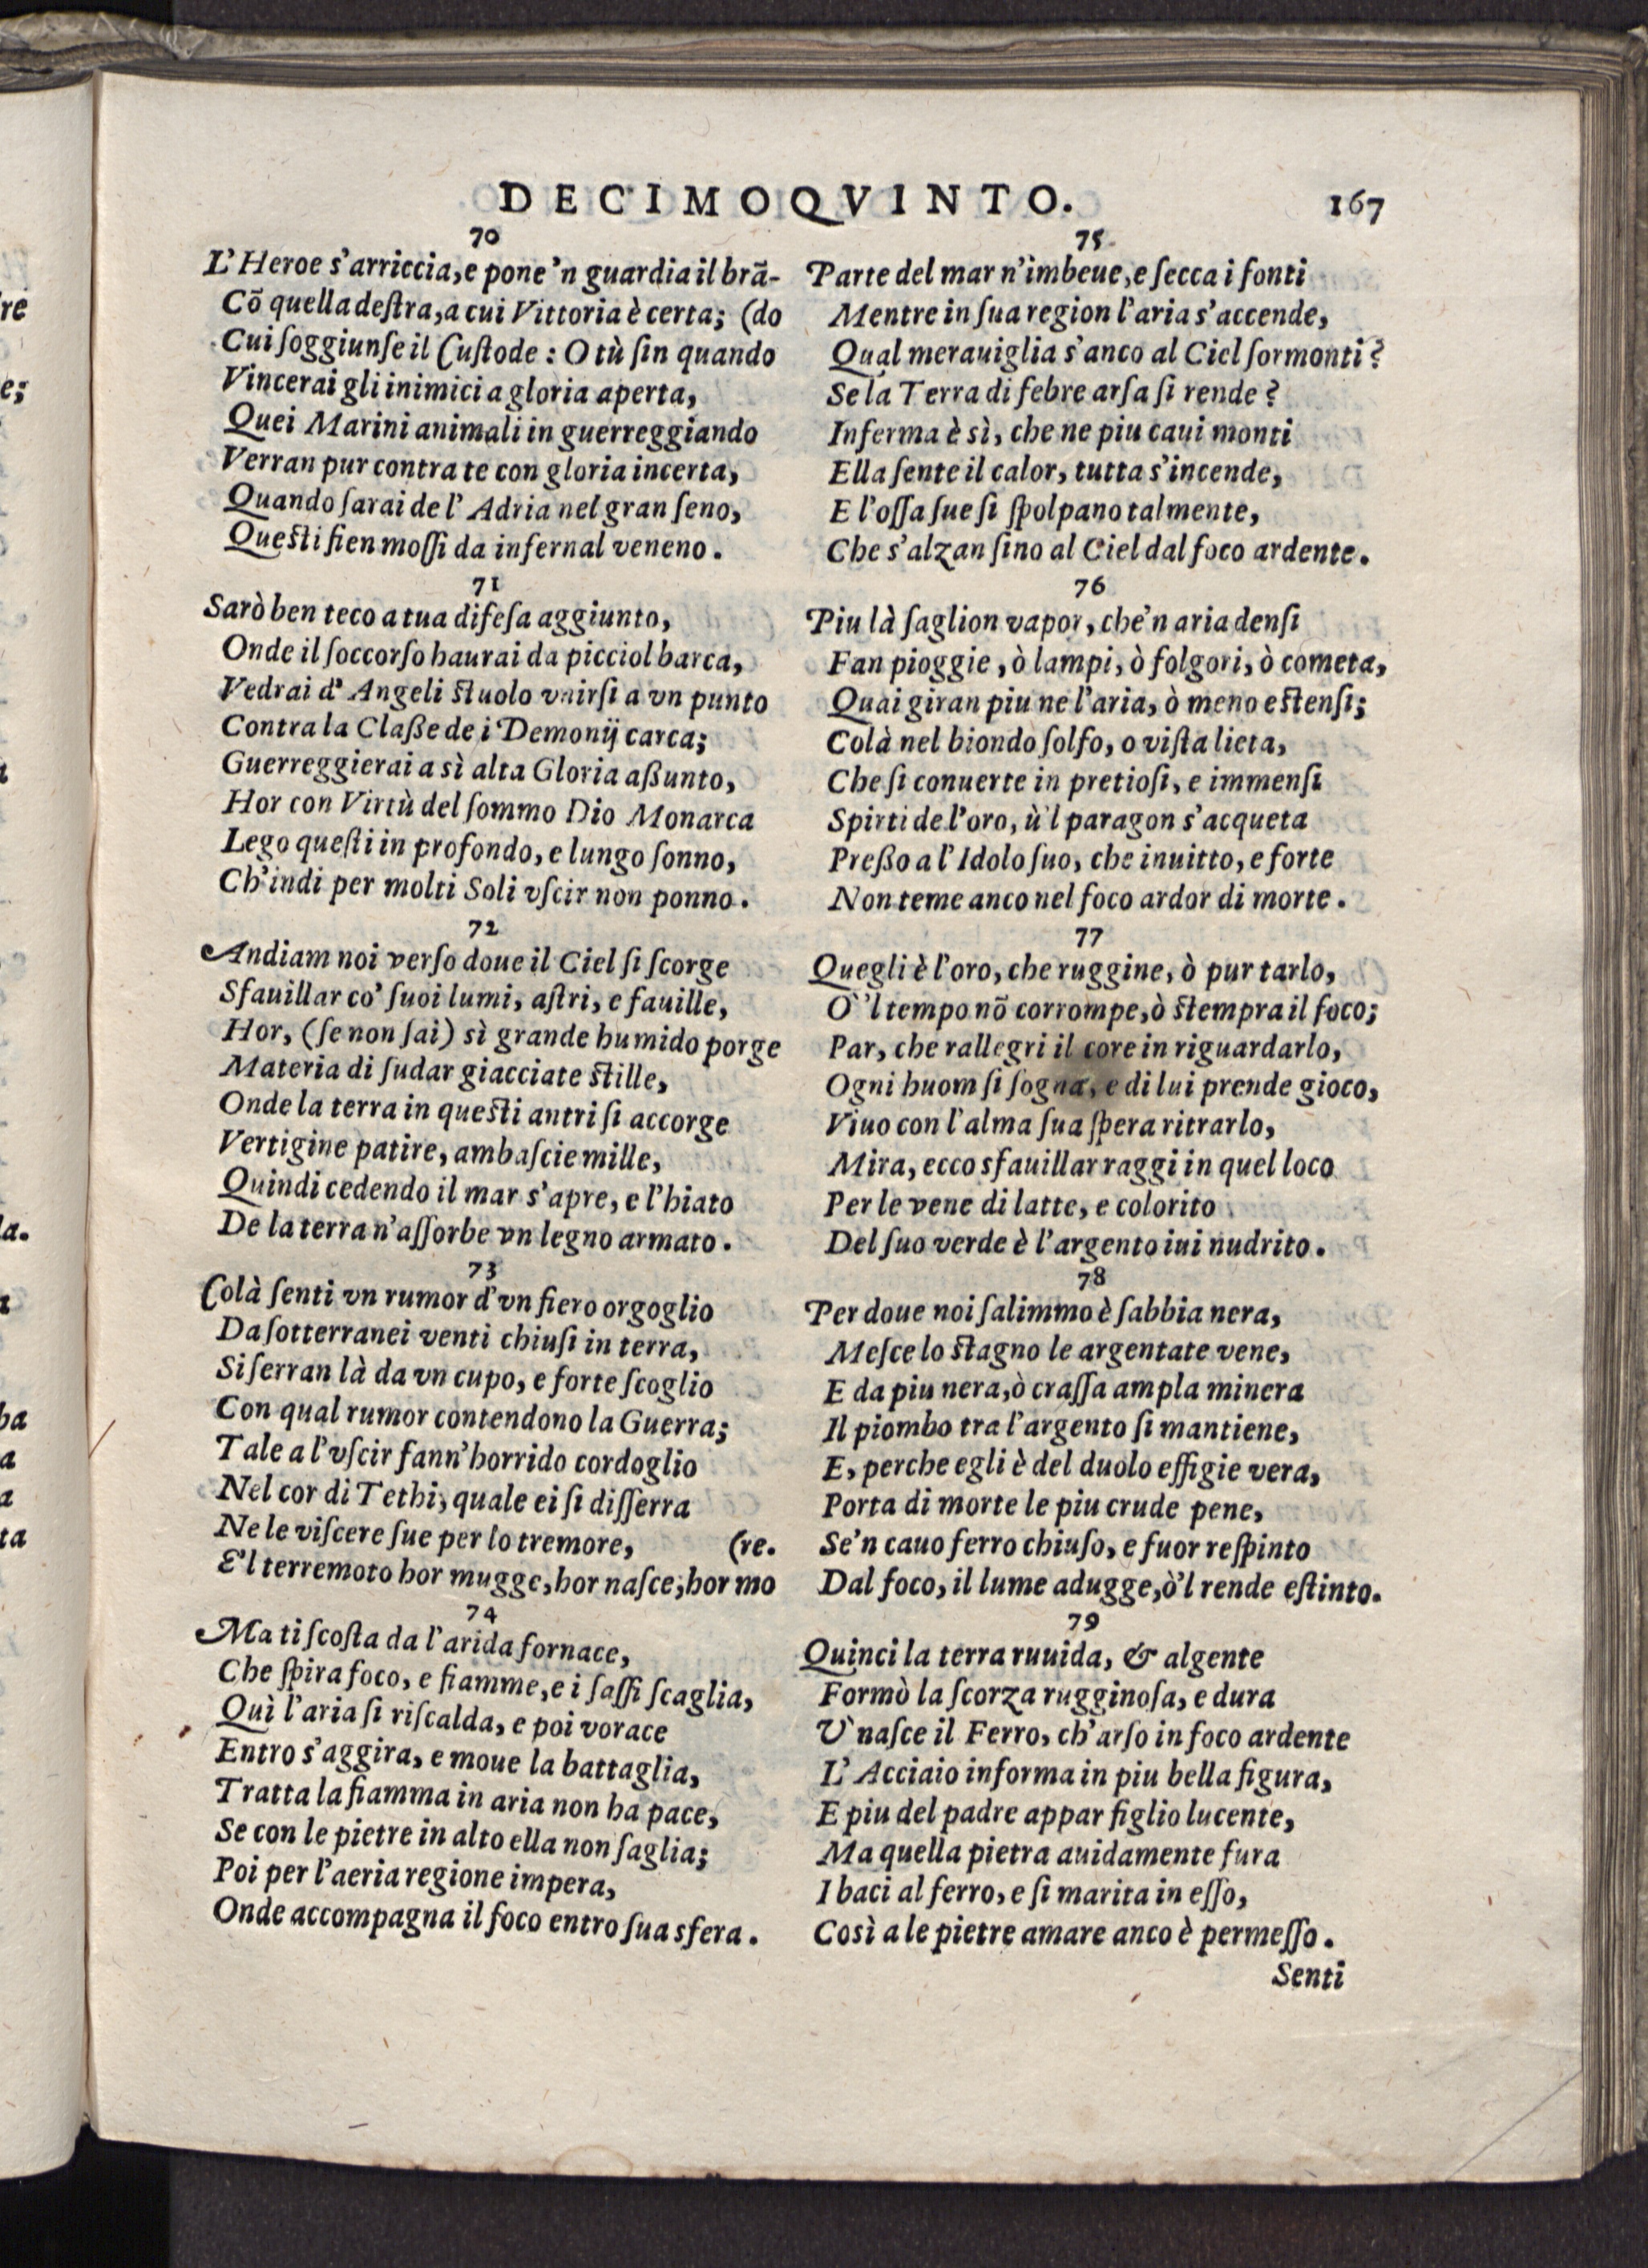 DECIMOQVINTO. 167
70
L'Heroe s'arriccia, e pone 'n guardia il brā-
Cō quella deſtra, a cui Vittoria è certa; (do
Cui ſoggiunſe il Cuſtode: O tù ſin quando
Vincerai gli inimici a gloria aperta,
Quei Marini animali in guerreggiando
Verran pur contra te con gloria incerta,
Quando ſarai de l'Adria nel gran ſeno,
Queſti fien moſſi da infernal veneno.
71
Sarò ben teco a tua difeſa aggiunto,
Onde il ſoccorſo haurai da picciol barca,
Vedrai d'Angeli ſtuolo vnirſi a vn punto
Contra la Claßе de i Demonij carca;
Guerreggierai a sì alta Gloria aßunto,
Hor con Virtù del ſommo Dio Monarca
Lego queſti in profondo, e lungo ſonno,
Ch'indi per molti Soli vſcir non ponno.
72
Andiam noi verſo doue il Ciel ſi ſcorge
Sfauillar co' ſuoi lumi, aſtri, e fauille,
Hor, (ſe non ſai) sì grande humido porge
Materia di ſudar giacciate ſtille,
Onde la terra in queſti antri ſi accorge
Vertigine patire, ambaſcie mille,
Quindi cedendo il mar s'apre, e l'hiato
De la terra n'aſſorbe vn legno armato.
73
Colà ſenti vn rumor d'vn fiero orgoglio
Da ſotterranei venti chiuſi in terra,
Si ſerran là da vn cupo, e forte ſcoglio
Con qual rumor contendono la Guerra;
Tale a l'vſcir fann'horrido cordoglio
Nel cor di Tethi, quale ei ſi diſſerra
Ne le viſcere ſue per lo tremore, (re.
E'l terremoto hor mugge, hor naſce, hor mo
74
Ma ti ſcoſta da l'arida fornace,
Che ſpira foco, e fiamme, e i ſaſſi ſcaglia,
Quì l'aria ſi riſcalda, e poi vorace
Entro s'aggira, e moue la battaglia,
Tratta la fiamma in aria non ha pace,
Se con le pietre in alto ella non ſaglia;
Poi per l'aeria regione impera,
Onde accompagna il foco entro ſua sfera.
75
Parte del mar n'imbeue, e ſecca i fonti
Mentre in ſua region l'aria s'accende,
Qual merauiglia s'anco al Ciel ſormonti?
Se la Terra di febre arſa ſi rende?
Inferma è sì, che ne piu caui monti
Ella ſente il calor, tutta s'incende,
E l'oſſa ſue ſi ſpolpano talmente,
Che s'alzan ſino al Ciel dal foco ardente.
76
Piu là ſaglion vapor, che'n aria denſi
Fan pioggie, ò lampi, ò folgori, ò cometa,
Quai giran piu ne l'aria, ò meno eſtenſi;
Colà nel biondo ſolfo, o viſta lieta,
Che ſi conuerte in pretioſi, e immenſi
Spirti de l'oro, ù'l paragon s'acqueta
Preßo a l'Idolo ſuo, che inuitto, e forte
Non teme anco nel foco ardor di morte.
77
Quegli è l'oro, che ruggine, ò pur tarlo,
O''l tempo nō corrompe, ò ſtempra il foco;
Par, che rallegri il core in riguardarlo,
Ogni huom ſi ſogna, e di lui prende gioco,
Viuo con l'alma ſua ſpera ritrarlo,
Mira, ecco sfauillar raggi in quel loco
Per le vene di latte, e colorito
Del ſuo verde è l'argento iui nudrito.
78
Per doue noi ſalimmo è ſabbia nera,
Meſce lo ſtagno le argentate vene,
E da piu nera, ò craſſa ampla minera
Il piombo tra l'argento ſi mantiene,
E, perche egli è del duolo effigie vera,
Porta di morte le piu crude pene,
Se'n cauo ferro chiuſo, e fuor reſpinto
Dal foco, il lume adugge, ò'l rende eſtinto.
79
Quinci la terra ruuida, & algente
Formò la ſcorza rugginoſa, e dura
V' naſce il Ferro, ch'arſo in foco ardente
L'Acciaio informa in piu bella figura,
E piu del padre appar figlio lucente,
Ma quella pietra auidamente fura
I baci al ferro, e ſi marita in eſſo,
Così a le pietre amare anco è permeſſo.
Senti
re
e;
la.
ba
a
a
ta